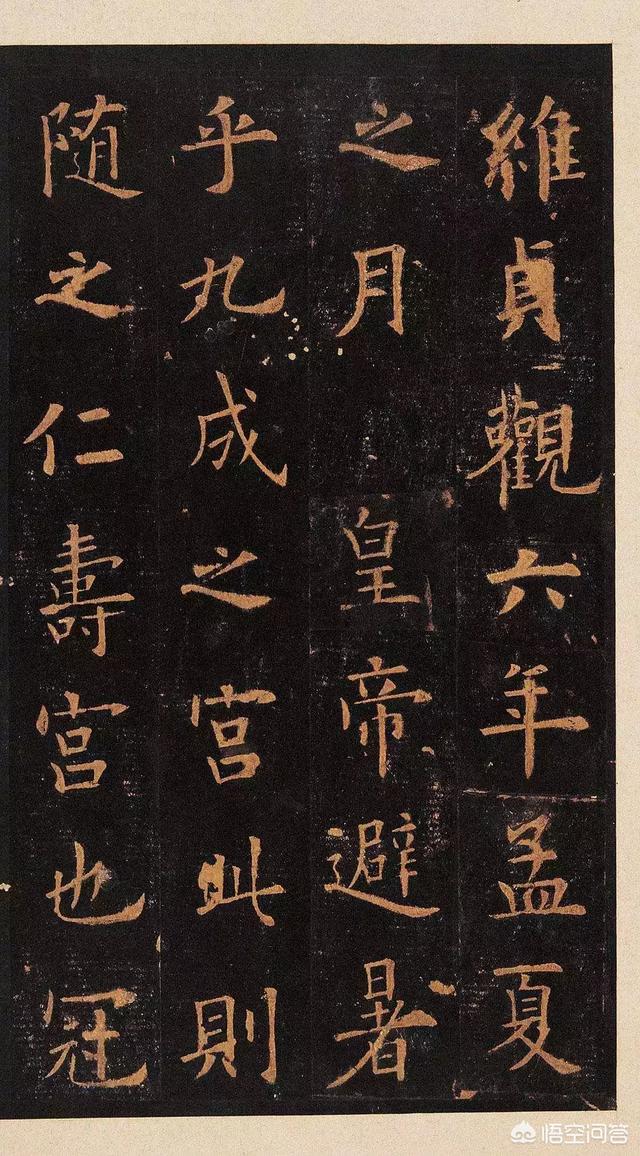 維貞觀六年孟夏
之月 皇帝避暑
乎九成之宮此則
随之仁壽宮也冠
悟空问答